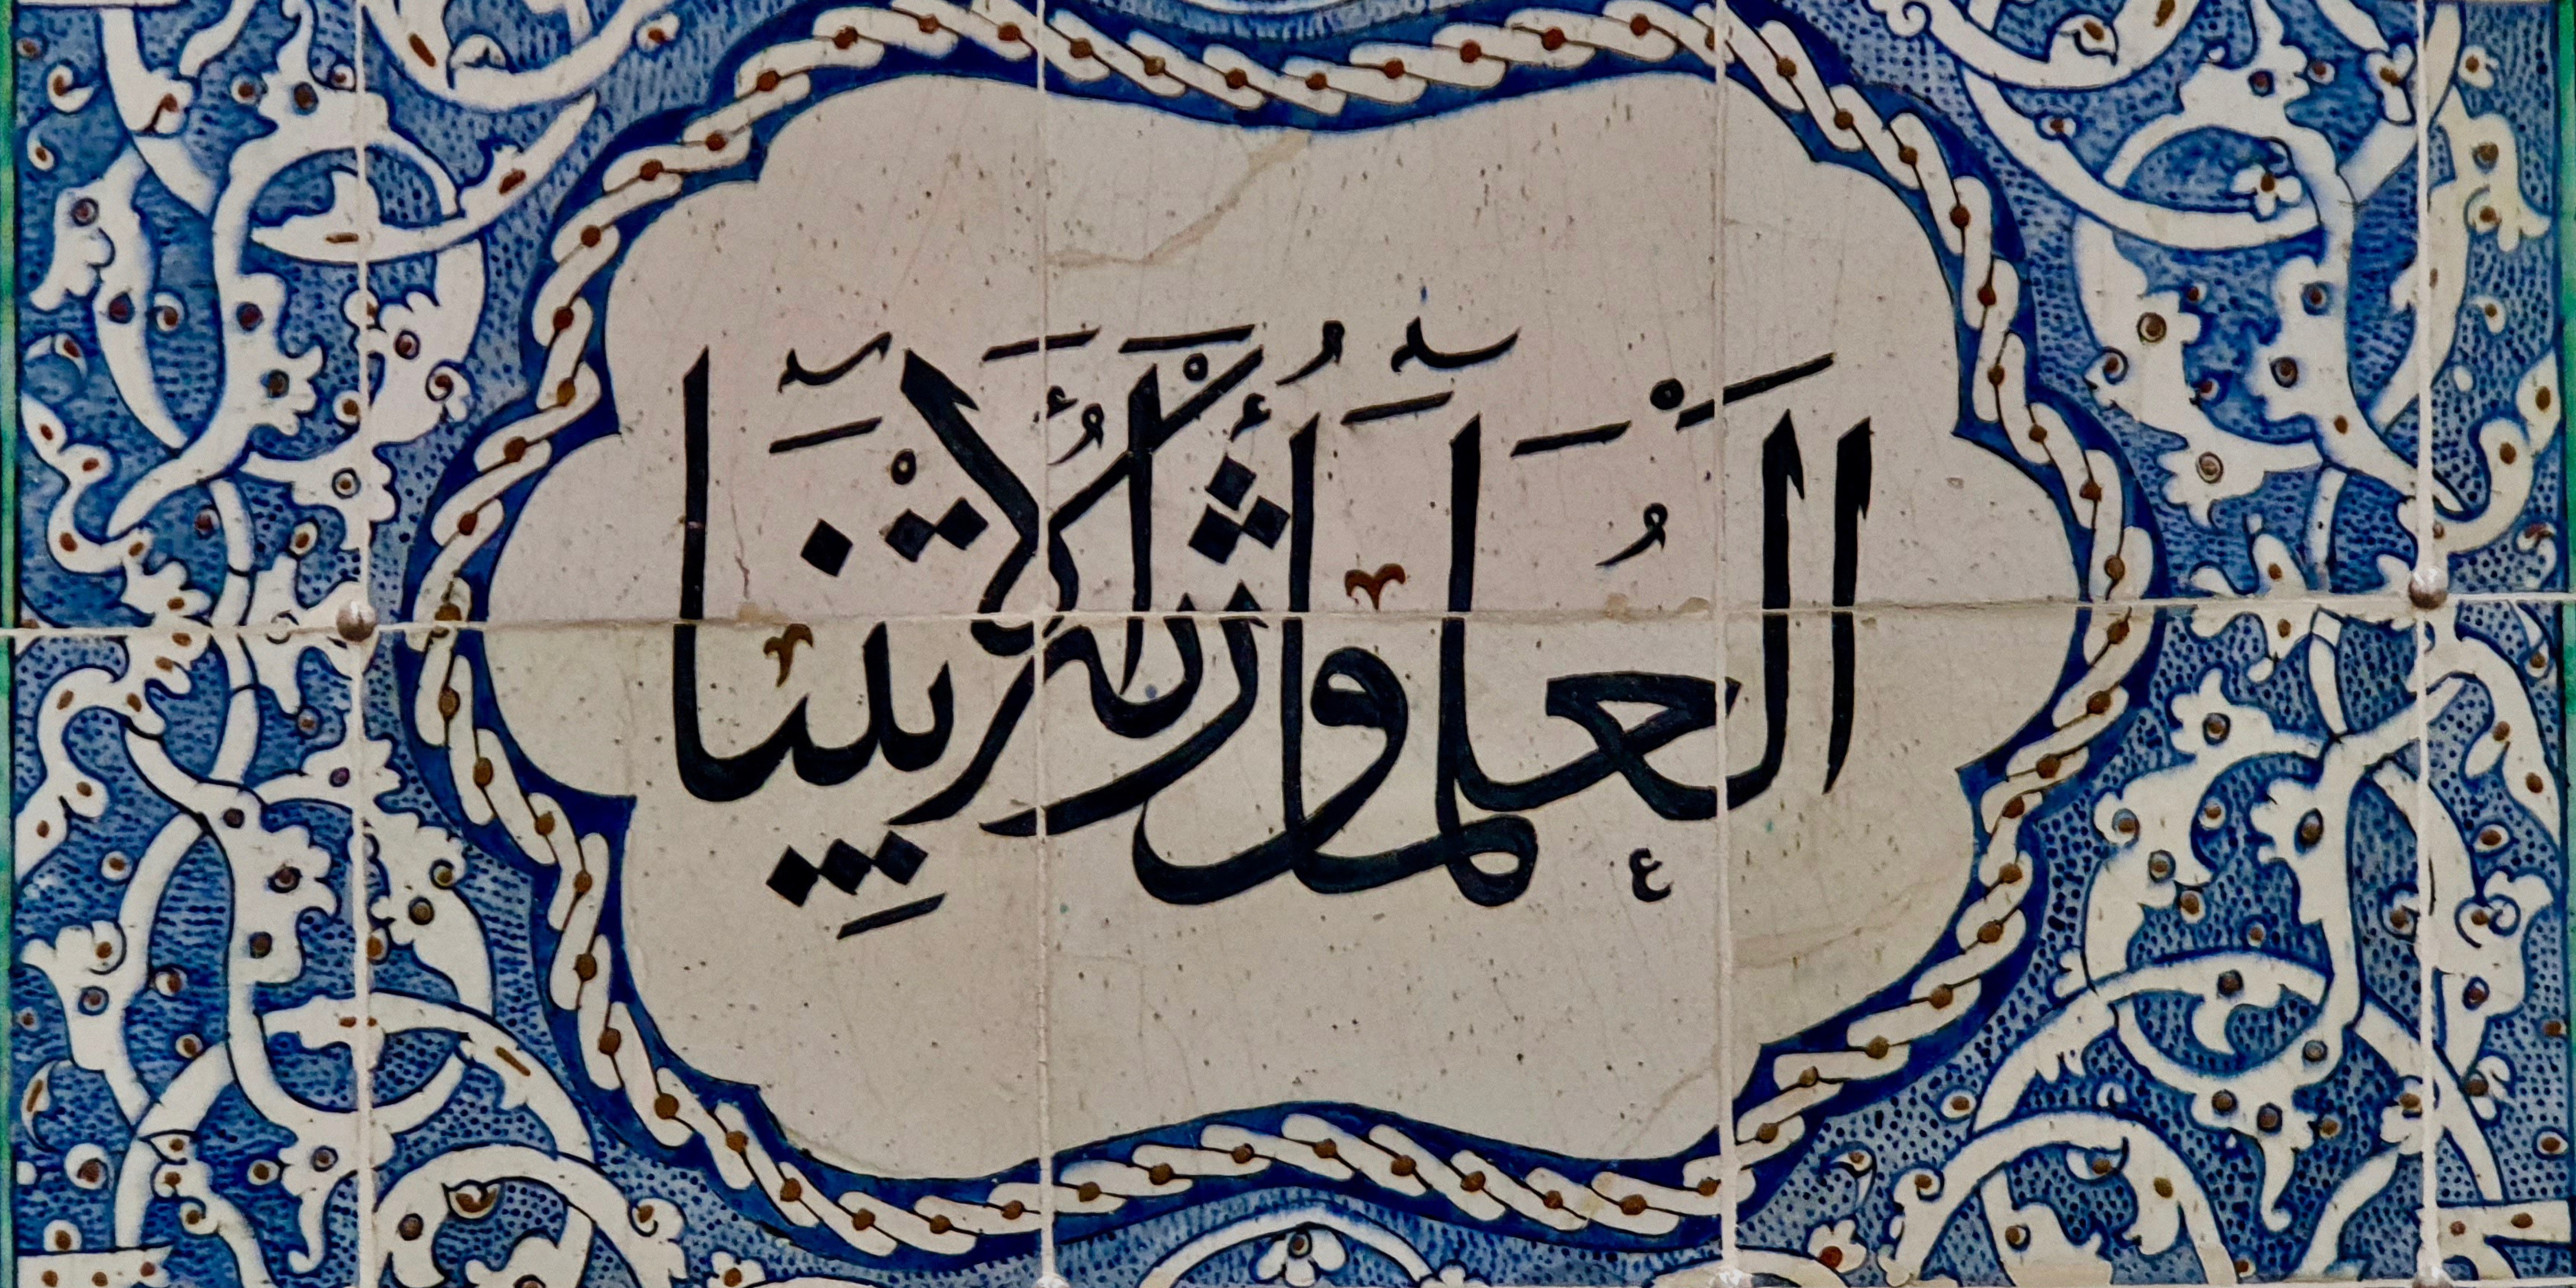 العُلَمَاءُ وَرَثَةُ الْأَنْبِيَاء